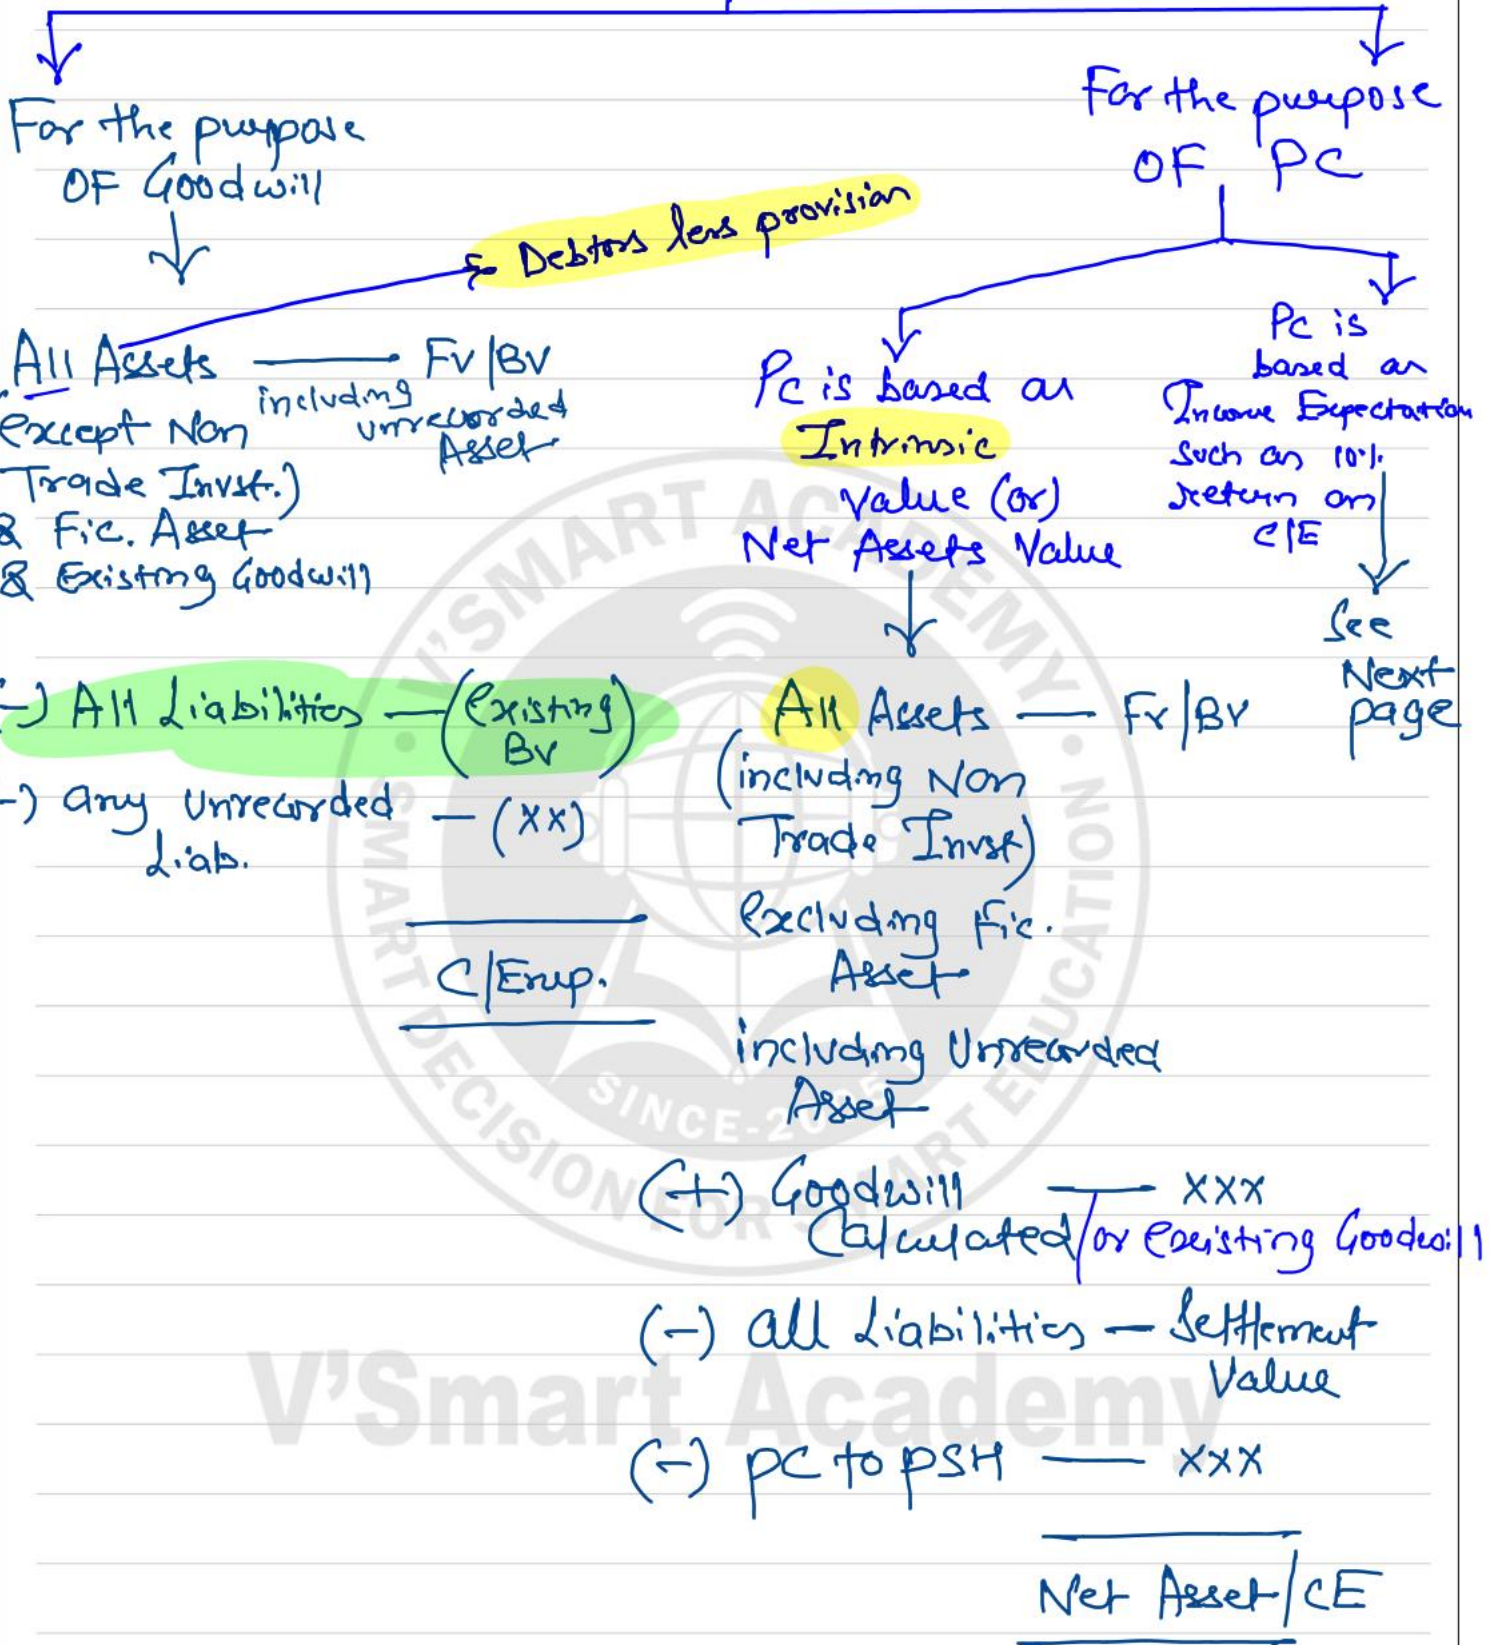 For the purpose
OF Goodwill
& Debtors less provision
All Assets — FV/BV
including
unrecorded
Asset
except Non
Trade Invst.)
& Fic. Asset
& Existing Goodwill
(-) All Liabilities — (existing
BV)
(-) any Unrecorded — (xx)
Liab.
C/Emp.
For the purpose
OF PC
PC is based on
Intrinsic
Value (or)
Net Assets Value
All Assets — FV/BV
(including Non
Trade Invst)
excluding Fic.
Asset
including Unrecorded
Asset
(+) Goodwill — xxx
Calculated/or existing Goodwill
(-) all Liabilities — Settlement
Value
(-) PC to PSH — xxx
Net Asset/CE
PC is
based on
Income Expectation
Such as 10%
return on
C/E
See
Next
page
V'SMART ACADEMY
SMART DECISION FOR SMART EDUCATION
SINCE-20
V'Smart Academy